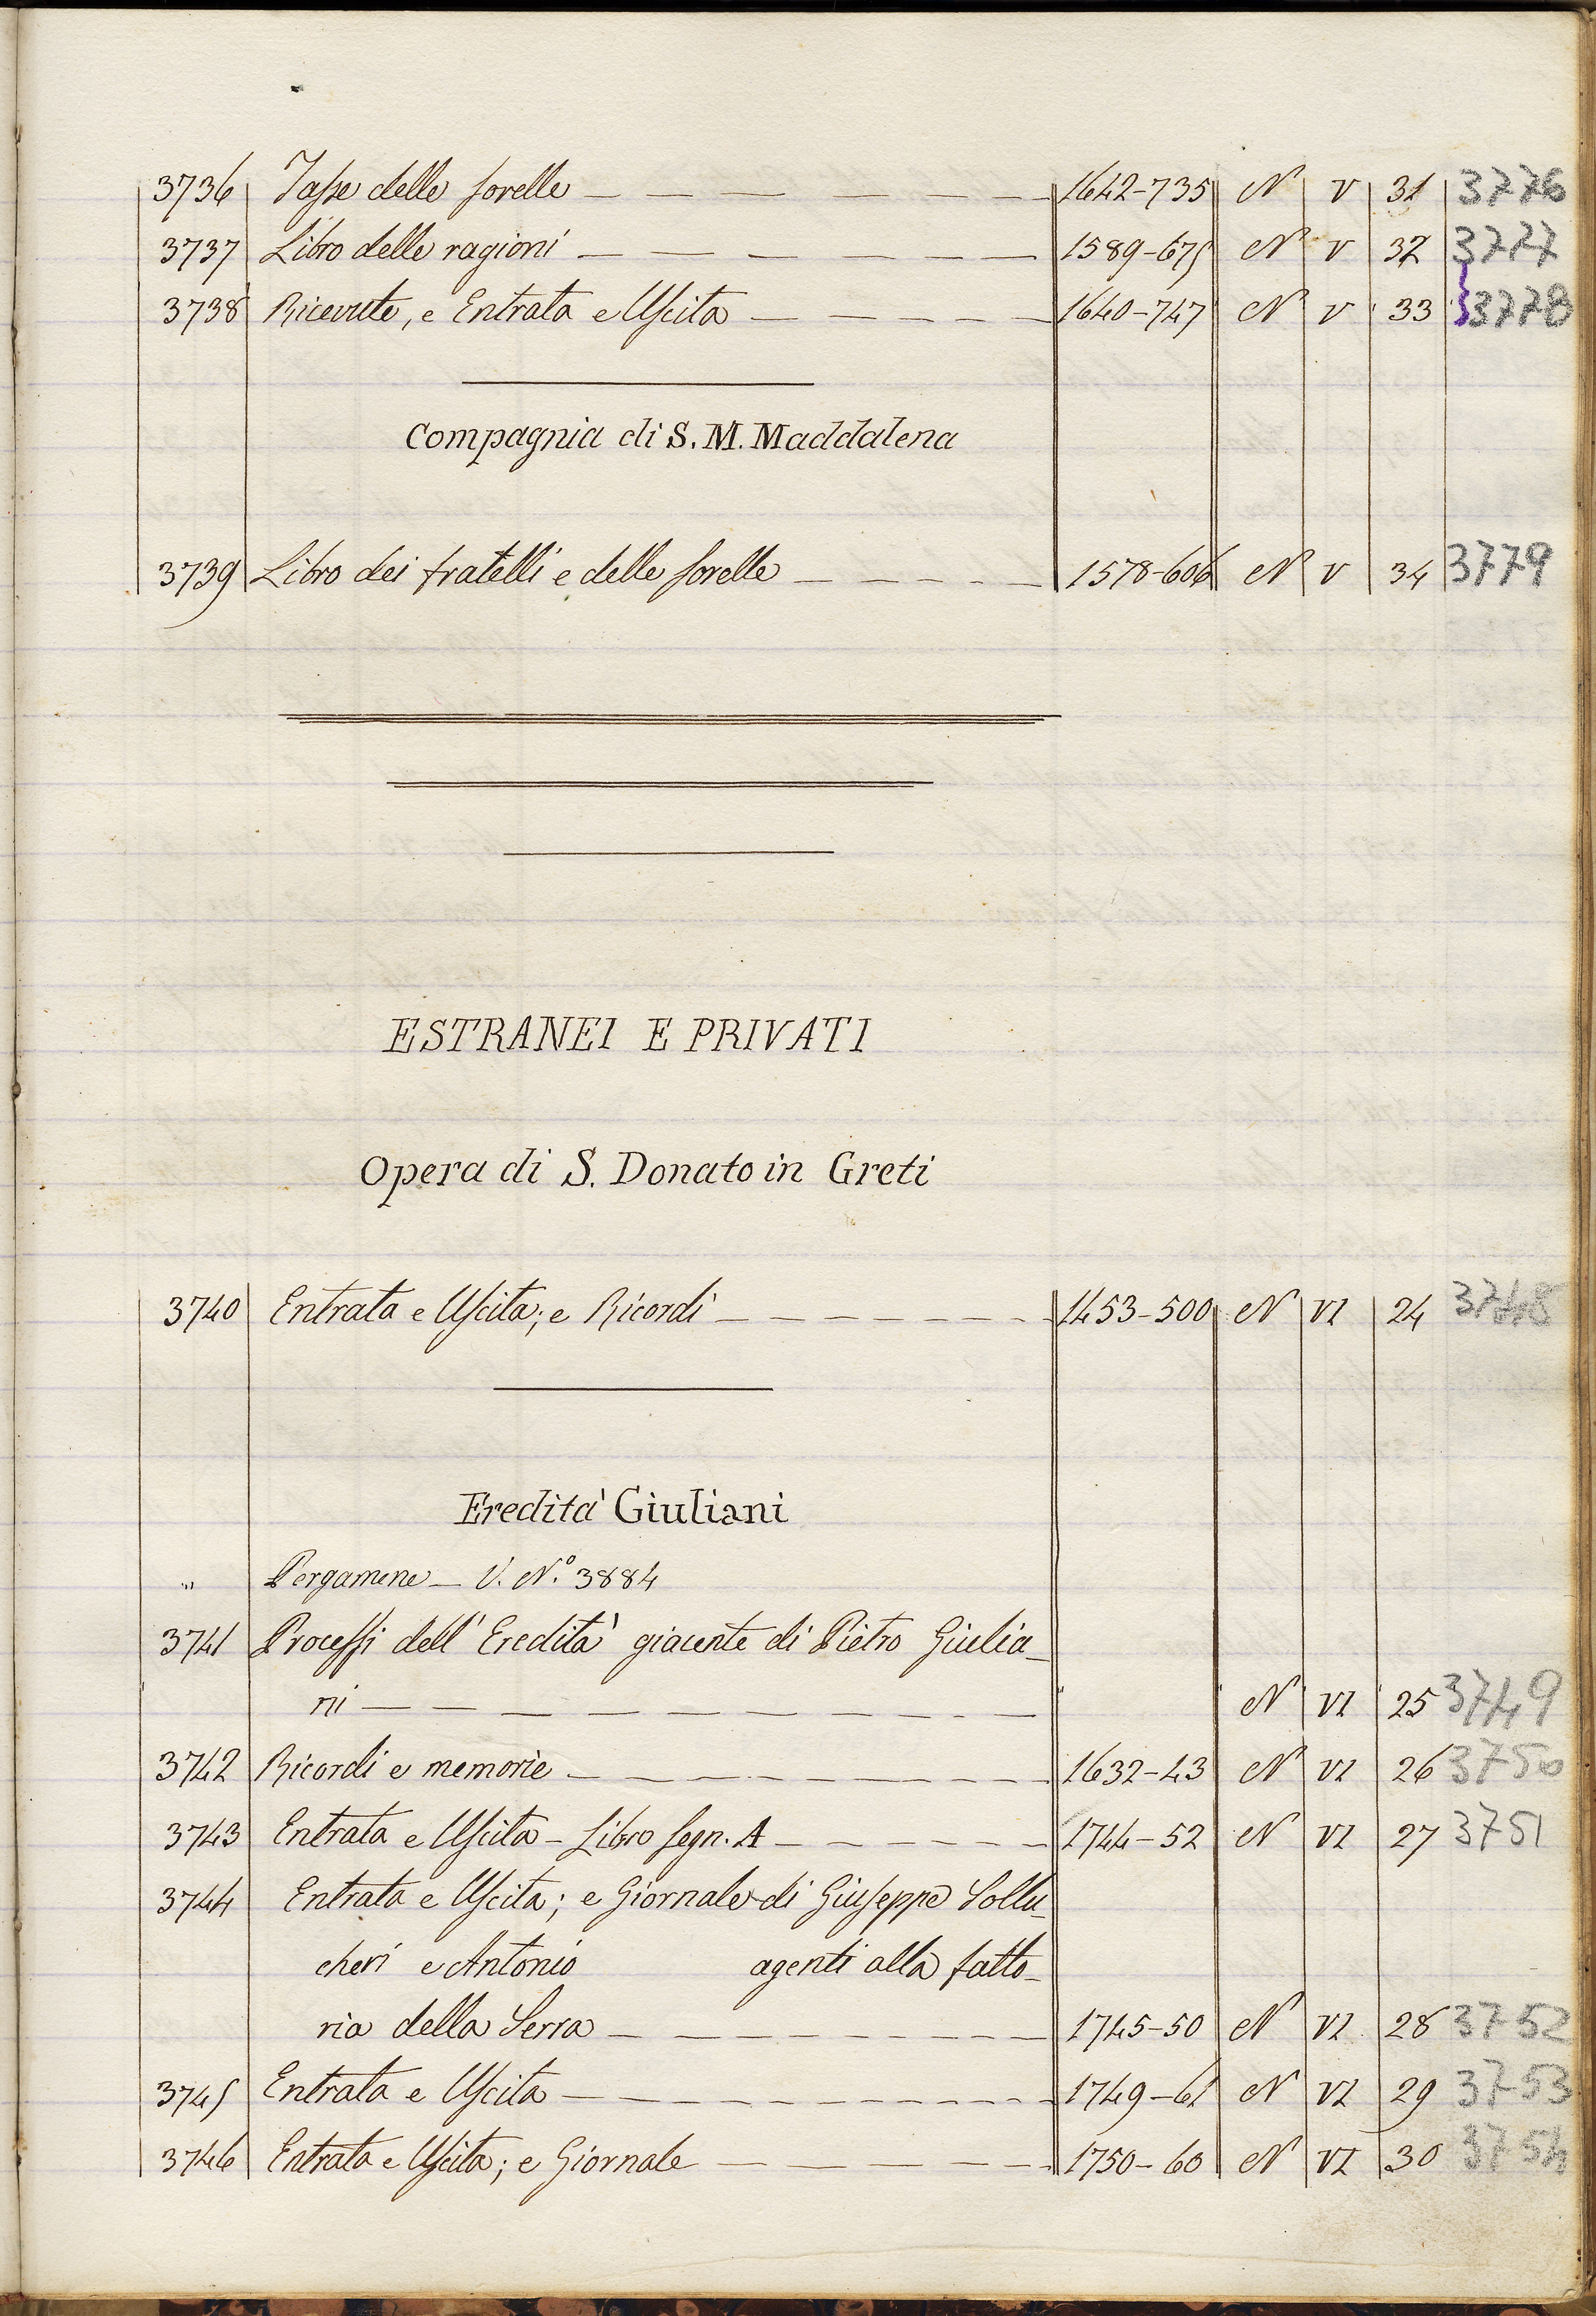 3736 Tasse delle sorelle — — — — — — — 1642-735 N V 31 3776
3737 Libro delle ragioni — — — — — — — 1589-675 N V 32 3777
3738 Ricevute, e Entrata e Uscita — — — — — 1640-747 N V 33 3778
Compagnia di S. M. Maddalena
3739 Libro dei fratelli e delle sorelle — — — — 1578-606 N V 34 3779
ESTRANEI E PRIVATI
Opera di S. Donato in Greti
3740 Entrata e Uscita; e Ricordi — — — — — — — 1453-500 N VI 24 3748
Eredità Giuliani
" Pergamene — V. N.º 3884
3741 Processi dell'Eredità giacente di Pietro Giulia-
ni — — — — — — — — — N VI 25 3749
3742 Ricordi e memorie — — — — — — — — 1632-43 N VI 26 3750
3743 Entrata e Uscita - Libro segn. A — — — — — 1744-52 N VI 27 3751
3744 Entrata e Uscita; e Giornale di Giuseppe Sollu-
cheri e Antonio agenti alla fatto-
ria della Serra — — — — — — — 1745-50 N VI 28 3752
3745 Entrata e Uscita — — — — — — — — 1749-61 N VI 29 3753
3746 Entrata e Uscita; e Giornale — — — — — — 1750-60 N VI 30 3754